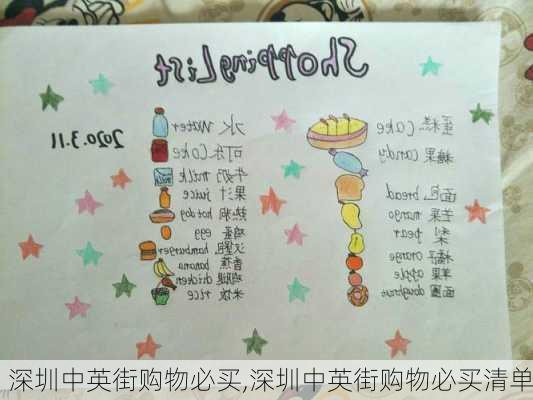 Shopping List
蛋糕 cake
糖果 candy
面包 bread
芒果 mango
梨 pear
橘子 orange
苹果 apple
面圈 doughnut
水 water
可乐 coke
牛奶 milk
果汁 juice
热狗 hot dog
鸡蛋 egg
汉堡包 hamburger
香蕉 banana
鸡腿 chicken
米饭 rice
2020.3.11
深圳中英街购物必买,深圳中英街购物必买清单